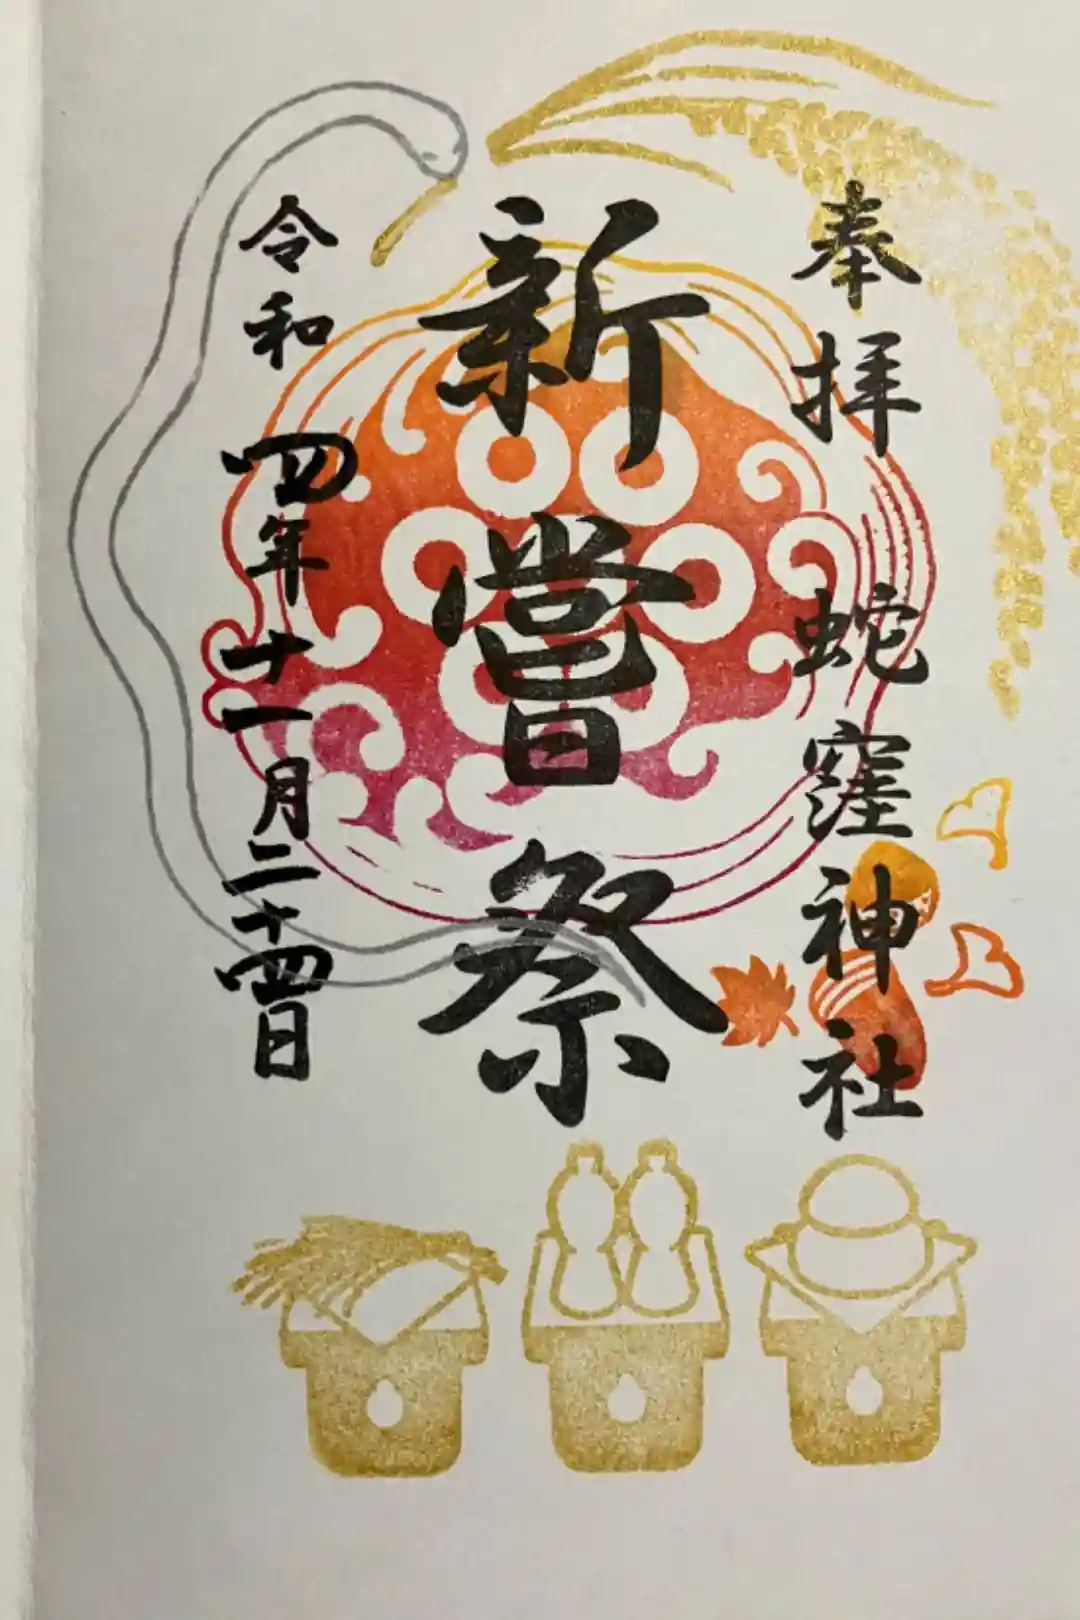 奉拝 蛇窪神社
新嘗祭
令和四年十一月二十四日